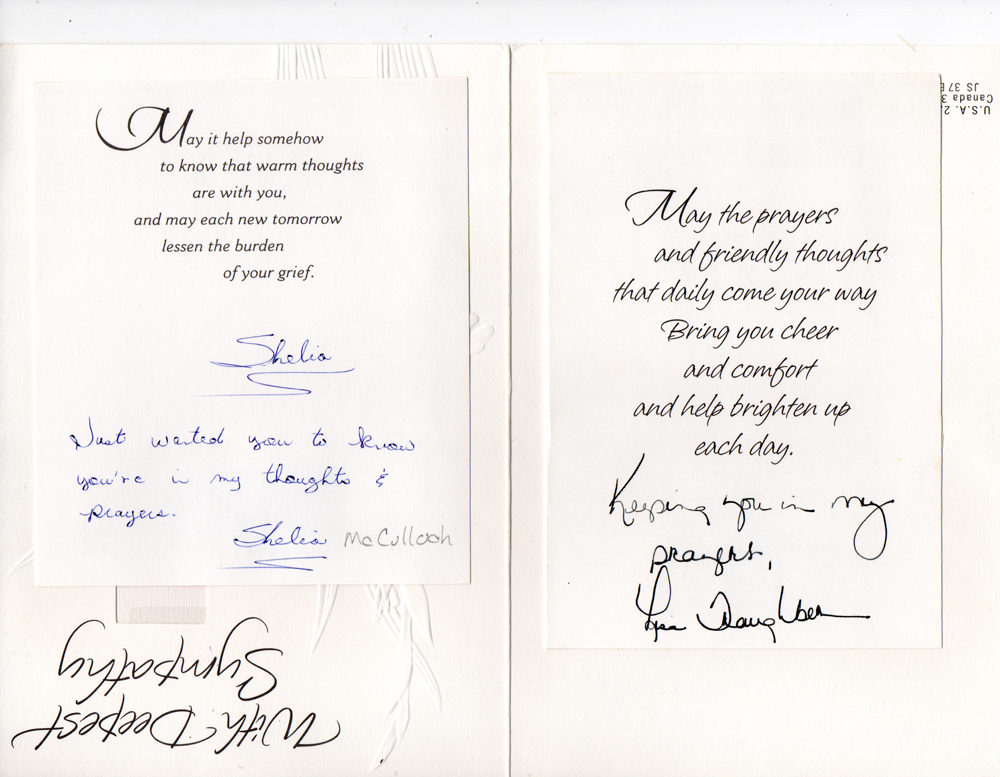 May it help somehow
to know that warm thoughts
are with you,
and may each new tomorrow
lessen the burden
of your grief.
Shelia
Just wanted you to know
you're in my thoughts &
prayers.
Shelia McCulloch
With Deepest
Sympathy
U.S.A. 2
Canada 3
JS 37
May the prayers
and friendly thoughts
that daily come your way
Bring you cheer
and comfort
and help brighten up
each day.
Keeping you in my
prayers,